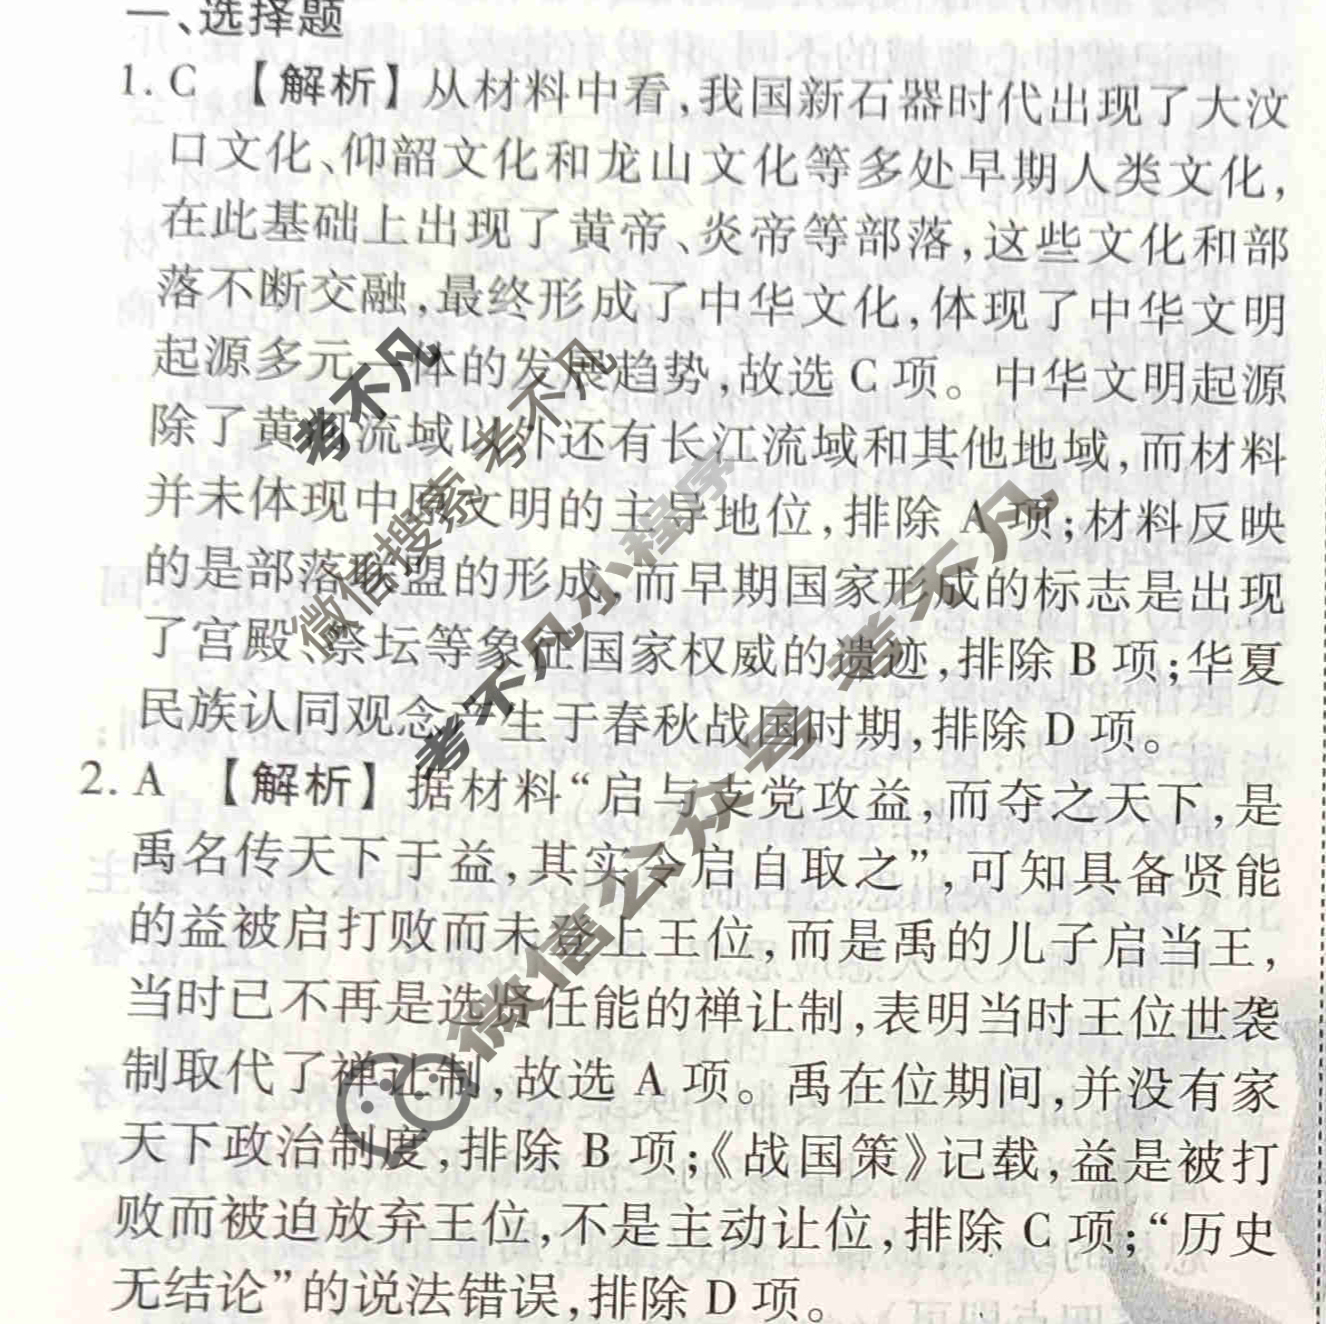 一、选择题
1. C 【解析】从材料中看,我国新石器时代出现了大汶
口文化、仰韶文化和龙山文化等多处早期人类文化,
在此基础上出现了黄帝、炎帝等部落,这些文化和部
落不断交融,最终形成了中华文化,体现了中华文明
起源多元一体的发展趋势,故选 C 项。中华文明起源
除了黄河流域以外还有长江流域和其他地域,而材料
并未体现中原文明的主导地位,排除 A 项;材料反映
的是部落联盟的形成,而早期国家形成的标志是出现
了宫殿、祭坛等象征国家权威的遗迹,排除 B 项;华夏
民族认同观念产生于春秋战国时期,排除 D 项。
2. A 【解析】据材料“启与支党攻益,而夺之天下,是
禹名传天下于益,其实令启自取之”,可知具备贤能
的益被启打败而未登上王位,而是禹的儿子启当王,
当时已不再是选贤任能的禅让制,表明当时王位世袭
制取代了禅让制,故选 A 项。禹在位期间,并没有家
天下政治制度,排除 B 项;《战国策》记载,益是被打
败而被迫放弃王位,不是主动让位,排除 C 项;“历史
无结论”的说法错误,排除 D 项。
考不凡
微信搜索 考不凡
考不凡小程序
微信公众号 考不凡